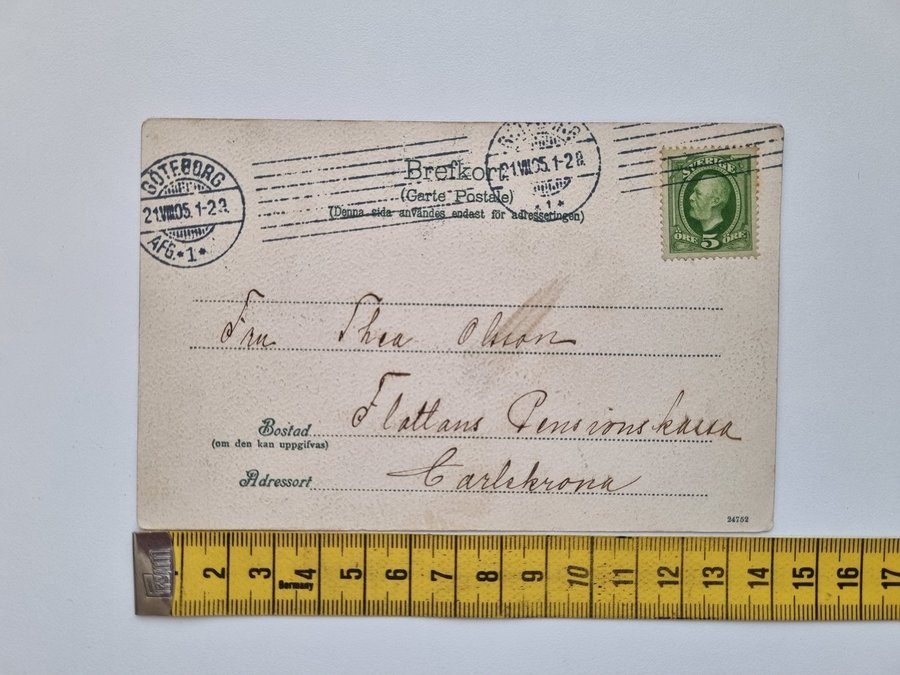 GÖTEBORG
21.VIII.05.1-2.8.
AFG.*1*
21.VIII.05.1-2.8
*1*
SVERIGE
ÖRE 5 ÖRE
Brefkort
(Carte Postale)
(Denna sida användes endast för adresseringen)
Fru Thea Olsson
Flottans Pensionskassa
Bostad
(om den kan uppgifvas)
Carlskrona
Adressort
24752
2 3 4 5 6 7 8 9 10 11 12 13 14 15 16 17
Germany